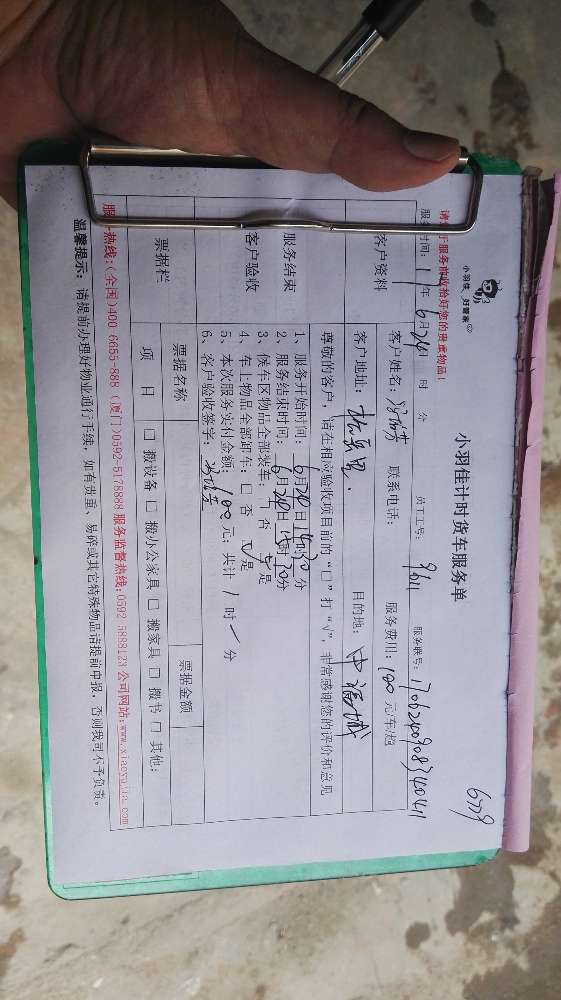 6729
小羽佳 好管家
小羽佳计时货车服务单
请于服务前收拾好您的贵重物品!
服 时间: 17年6月24日 时 分 员工工号: 9611 服务账号: 170624090834041
客户资料
客户姓名: 芳 联系电话: 服务费用: 100元/车/趟
客户地址: 里. 目的地: 中 城
服务结束
客户验收
尊敬的客户, 请在相应验收项目前的“口”打“√”, 非常感谢您的评价和意见
1、服务开始时间: 6月24日14时30分
2、服务结束时间: 6月24日15时30分
3、候车区物品全部装车: 否 是
4、车上物品全部卸车: 口 否 是
5、本次服务实付金额: 100元; 共计 1 时 分
6、客户验收签字: 芳
票据栏
票据名称 票据金额
项 目 口 搬设备 口 搬办公家具 口 搬家具 口 搬书 口 其他:
服 热线:(全国)400-6655-888 (厦门)0592-5178888 服务监督热线:0592-5888123 公司网站:www.xiaoyujia.com
温馨提示: 请提前办理好物业通行手续, 如有贵重、易碎或其它特殊物品请提前申报, 否则我司不予负责。